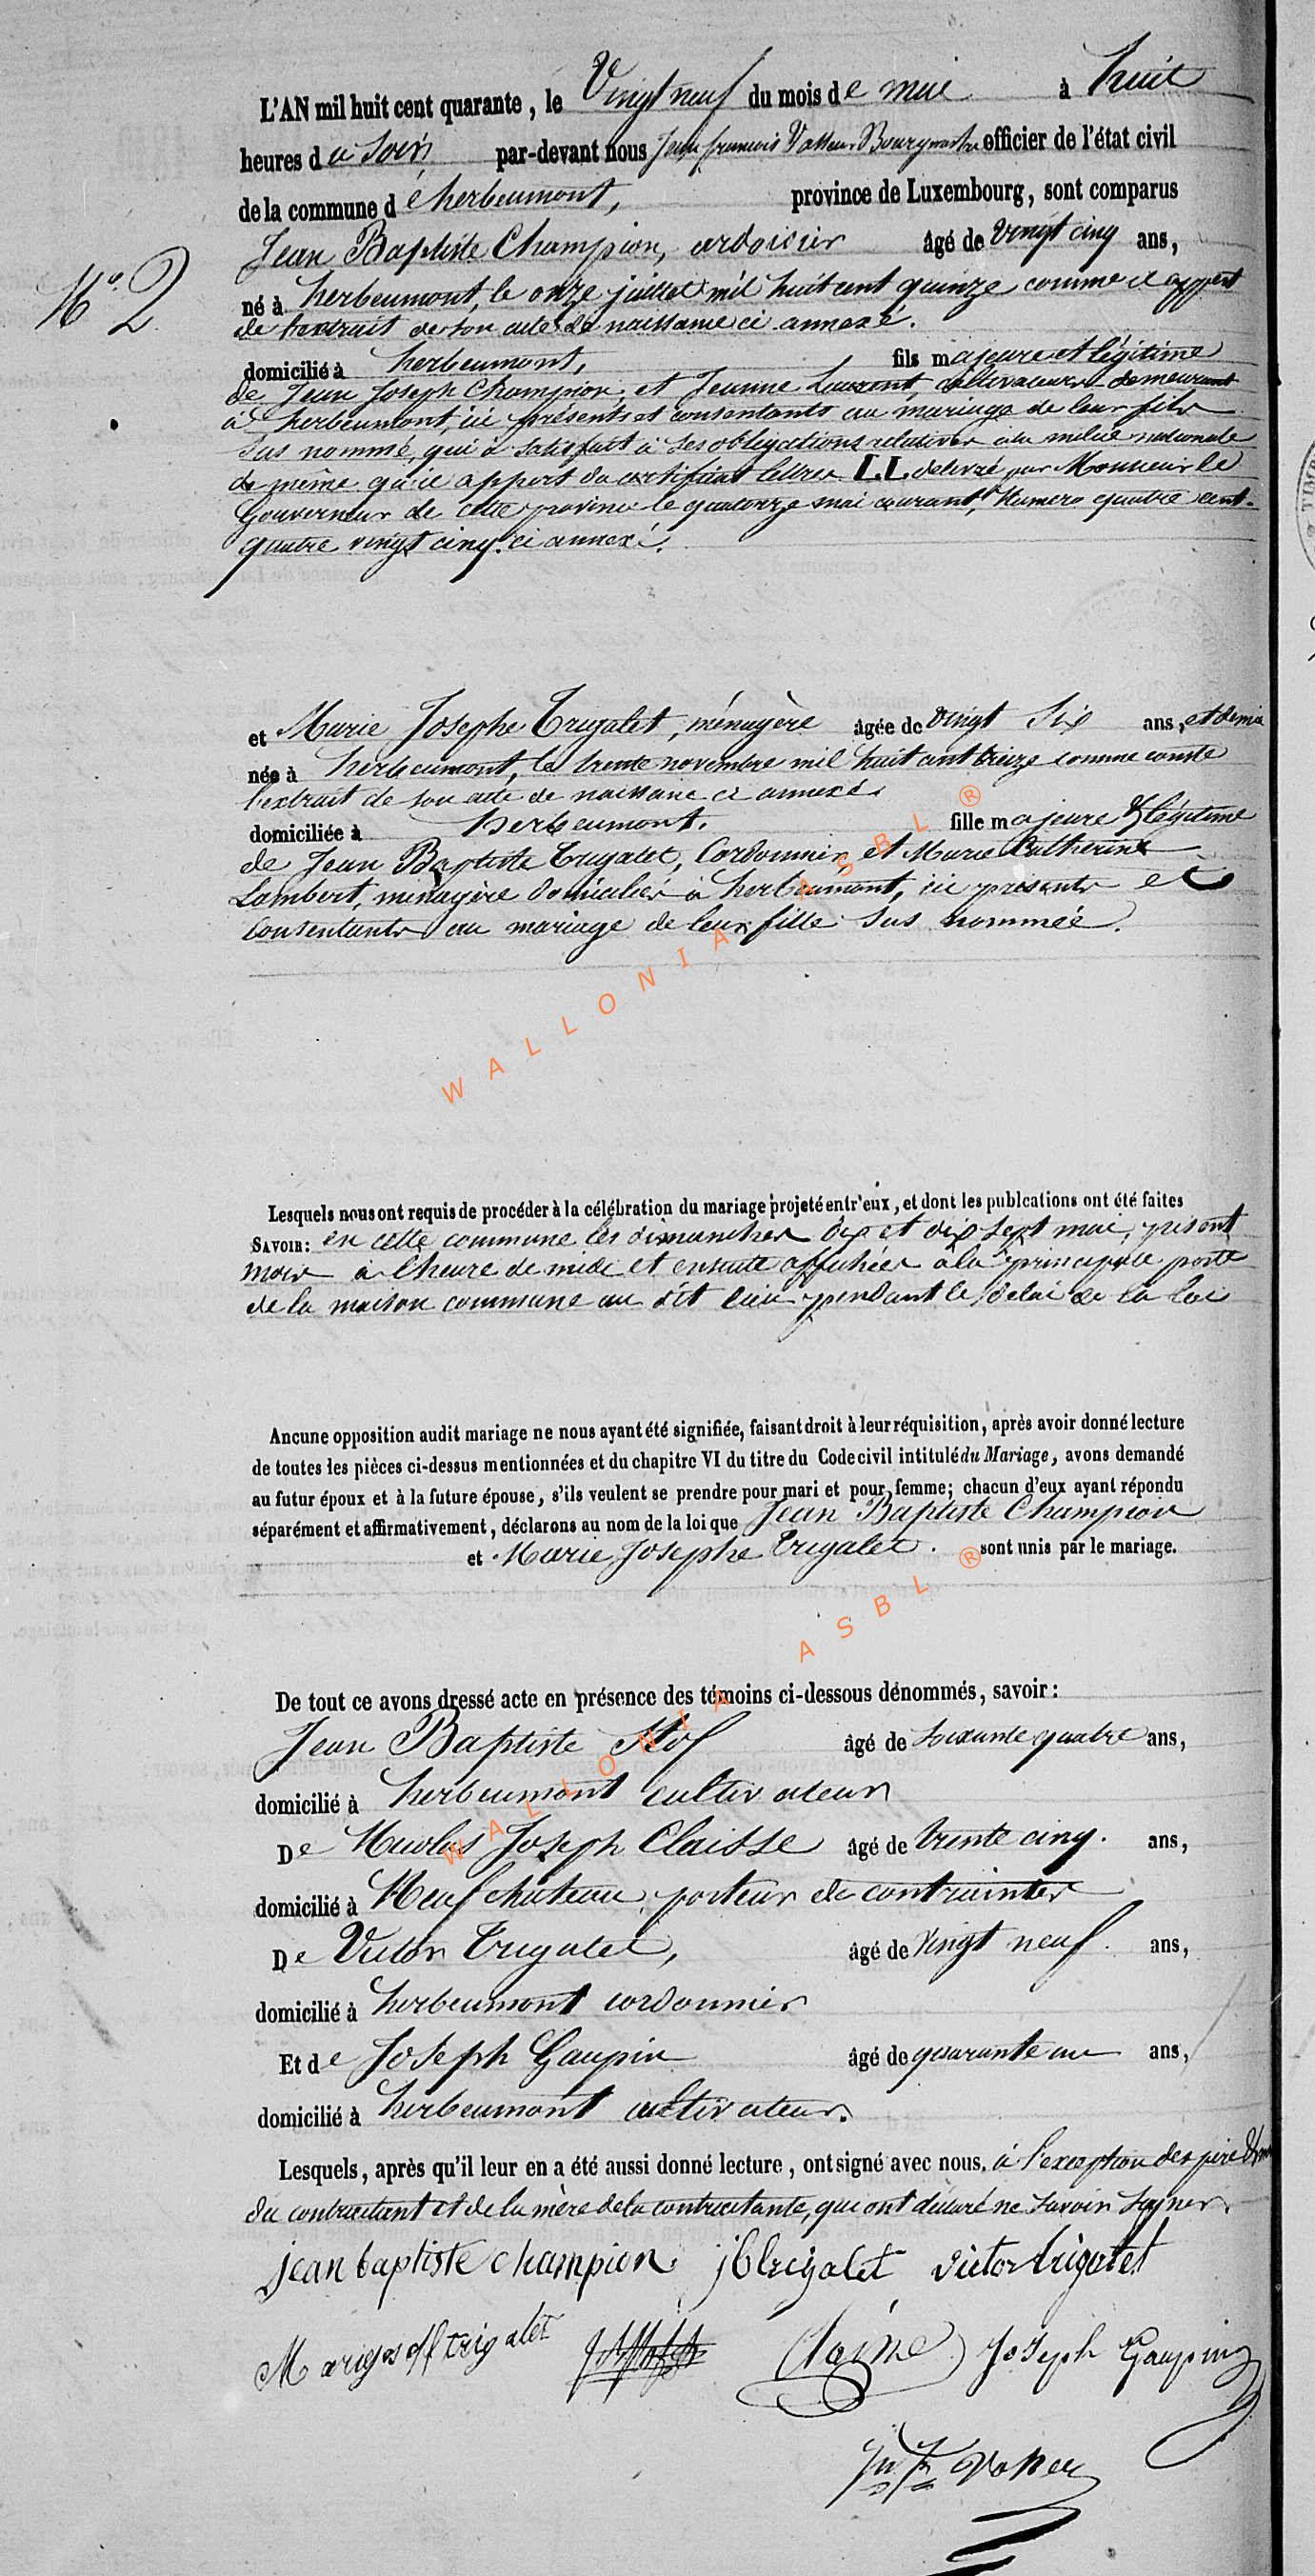 L'AN mil huit cent quarante, le Vingt neuf du mois de mai à huit
heures du soir, par-devant nous Jean françois Vasseur Bourgmestre officier de l'état civil
de la commune d'herbeumont, province de Luxembourg, sont comparus
Jean Baptiste Champion, ardoisier âgé de vingt cinq ans,
N° 2
né à herbeumont, le onze juillet mil huit cent quinze comme il appert
de l'extrait de son acte de naissance ci annexé.
domicilié à herbeumont, fils majeure et légitime
de Jean Joseph Champion, et Jeanne Laurent, cultivateurs demeurant
à herbeumont, ici présents et consentants au mariage de leur fils
sus nommé, qui a satisfait à ses obligations relatives à la milice nationale
de même qu'il appert du certificat lettres LL delivré par Monsieur le
Gouverneur de cette province le quatorze mai courant, Numero quatre cent-
quatre vingt cinq. ci annexé.
et Marie Josephe Trigalet, ménagère âgée de vingt Six ans, et demie
née à herbeumont, le trente novembre mil huit cent treize comme conste
l'extrait de son acte de naissance ci annexé.
domiciliée à herbeumont. fille majeure & légitime
de Jean Baptiste Trigalet, Cordonnier et Marie Catherine
Lambert, ménagère domiciliés à herbeumont, ici présents et
Consentants au mariage de leur fille sus nommée.
WALLONIA ASBL ®
Lesquels nous ont requis de procéder à la célébration du mariage projeté entr'eux, et dont les publcations ont été faites
SAVOIR: en cette commune les dimanches dix et dix sept mai, présent
mois à l'heure de midi et ensuite affichées à la principale porte
de la maison commune au dit lieu pendant le délai de la loi
Aucune opposition audit mariage ne nous ayant été signifiée, faisant droit à leur réquisition, après avoir donné lecture
de toutes les pièces ci-dessus mentionnées et du chapitre VI du titre du Code civil intitulé du Mariage, avons demandé
au futur époux et à la future épouse, s'ils veulent se prendre pour mari et pour femme; chacun d'eux ayant répondu
séparément et affirmativement, déclarons au nom de la loi que Jean Baptiste Champion
et Marie Josephe Trigalet. sont unis par le mariage.
WALLONIA ASBL ®
De tout ce avons dressé acte en présence des témoins ci-dessous dénommés, savoir:
Jean Baptiste âgé de soixante quatre ans,
domicilié à herbeumont cultivateur
De Nicolas Joseph Claisse âgé de trente cinq. ans,
domicilié à Neufchâteau, porteur de contraintes
De Victor Trigalet, âgé de vingt neuf. ans,
domicilié à herbeumont cordonnier
Et de Joseph Gaupin âgé de quarante un ans,
domicilié à herbeumont cultivateur.
Lesquels, après qu'il leur en a été aussi donné lecture, ont signé avec nous. à l'exception des père &
du contractant et de la mère de la contractante, qui ont déclaré ne savoir signer
jean baptiste champion. jbtrigalet victor trigalet
Mariejoseff trigalet Joseph Gaupin